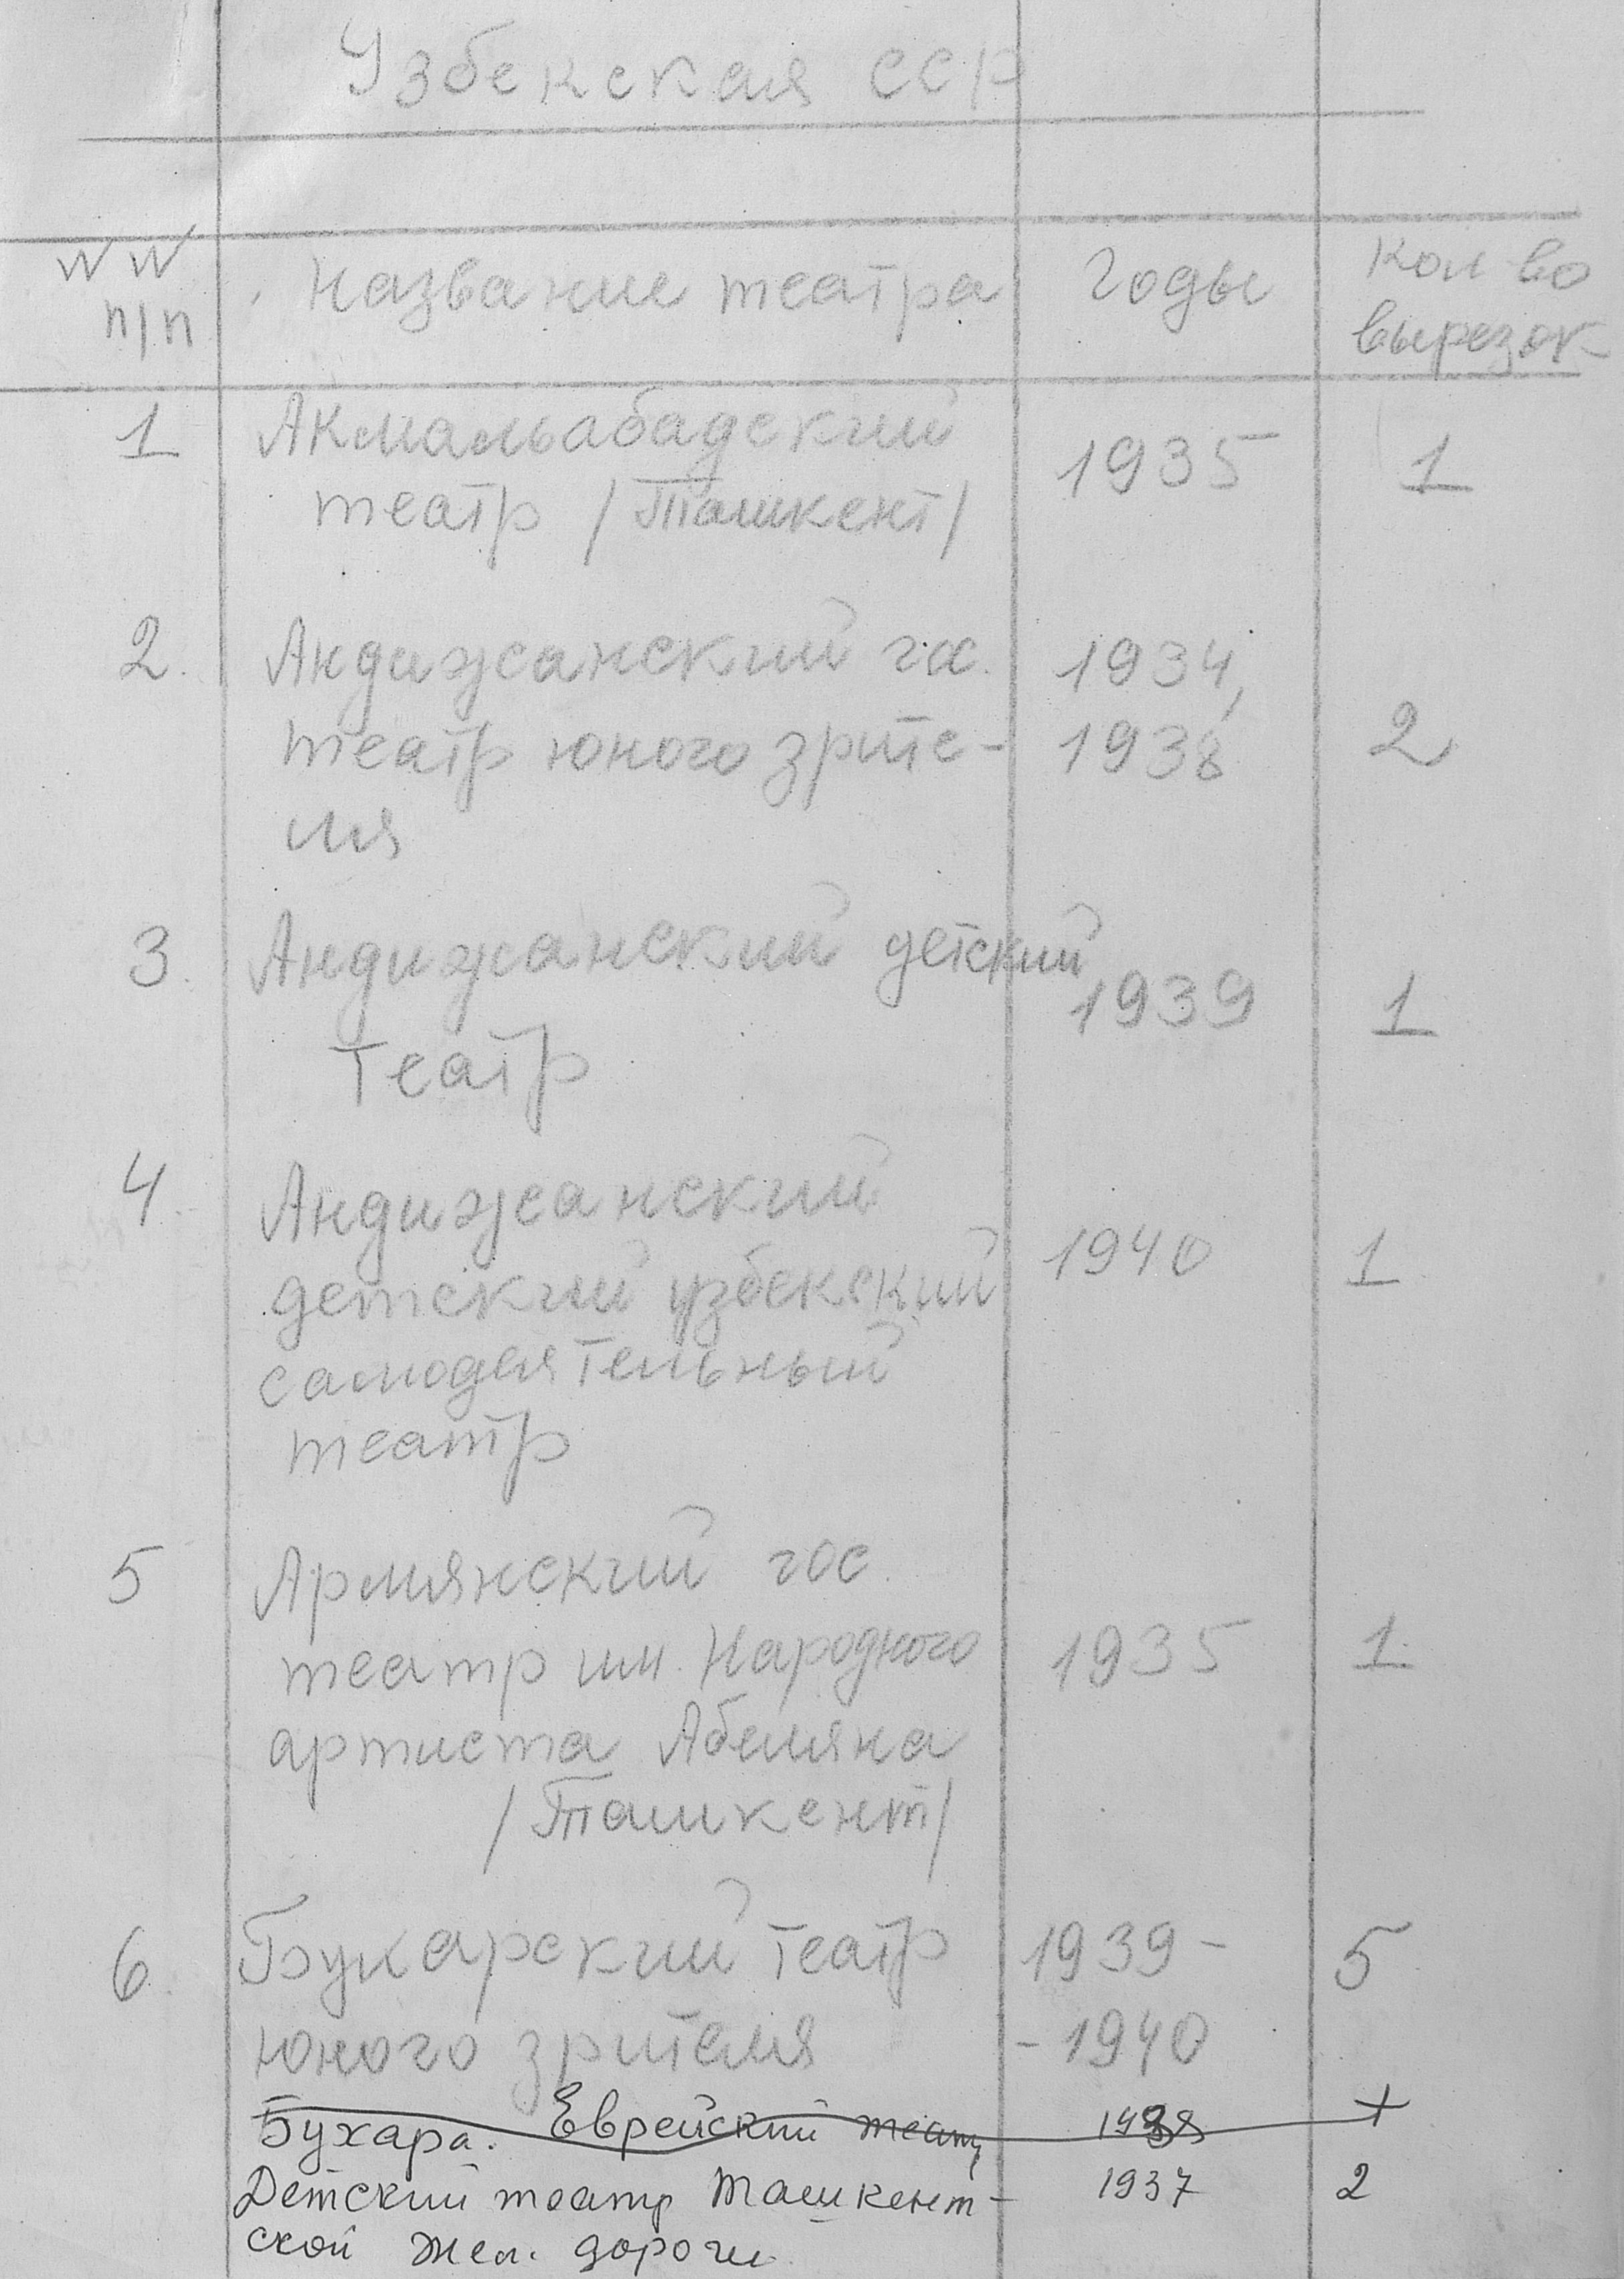 Узбекская ССР
NN п/п Название театра Годы Кол-во вырезок
1 Акмальабадский 1935 1
театр /Ташкент/
2. Андижанский гос. 1934,
театр юного зрите- 1938 2
ля
3. Андижанский детский
театр 1939 1
4. Андижанский
детский узбекский 1940 1
самодеятельный
театр
5 Армянский гос.
театр им. Народного 1935 1
артиста Абеляна
/Ташкент/
6. Бухарский театр 1939- 5
юного зрителя -1940
Бухара. Еврейский театр 1938
Детский театр Ташкент- 1937 2
ской жел. дороги